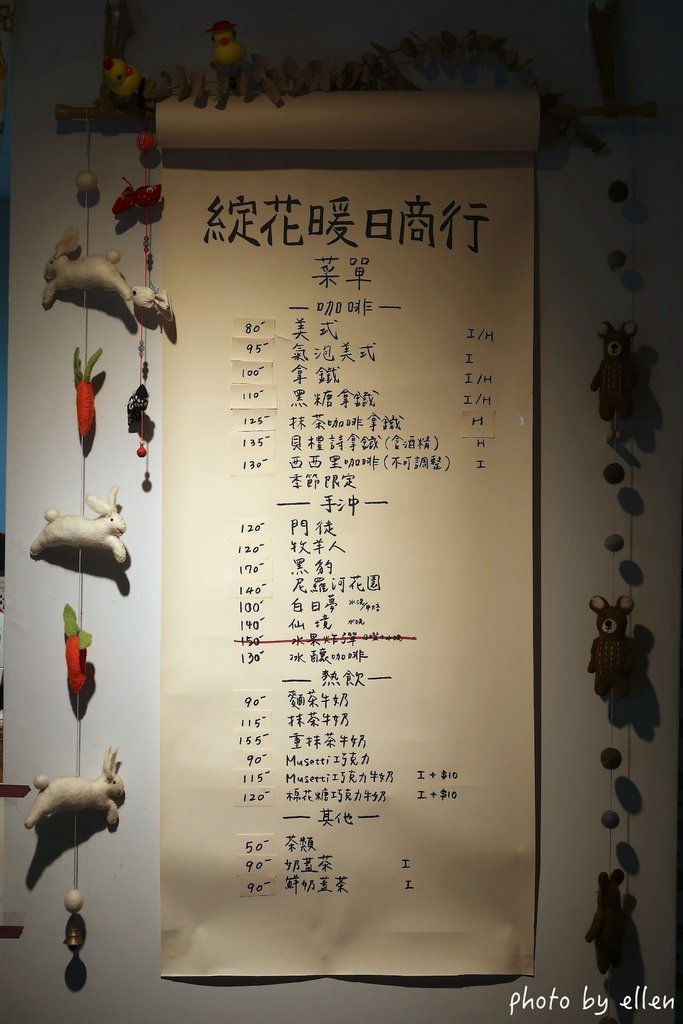 綻花暖日商行
菜單
—咖啡—
80- 美式 I/H
95- 氣泡美式 I
100- 拿鐵 I/H
110- 黑糖拿鐵 I/H
125- 抹茶咖啡拿鐵 H
135- 貝禮詩拿鐵(含酒精) H
130- 西西里咖啡(不可調整) I
季節限定
—手沖—
120- 門徒
120- 牧羊人
170- 黑豹
140- 尼羅河花園
100- 白日夢
140- 仙境 水洗
150- 水果炸彈
130- 冰釀咖啡
—熱飲—
90- 麵茶牛奶
115- 抹茶牛奶
155- 重抹茶牛奶
90- Musetti巧克力
115- Musetti巧克力牛奶 I+$10
120- 棉花糖巧克力牛奶 I+$10
—其他—
50- 茶類
90- 奶蓋茶 I
90- 鮮奶蓋茶 I
photo by ellen